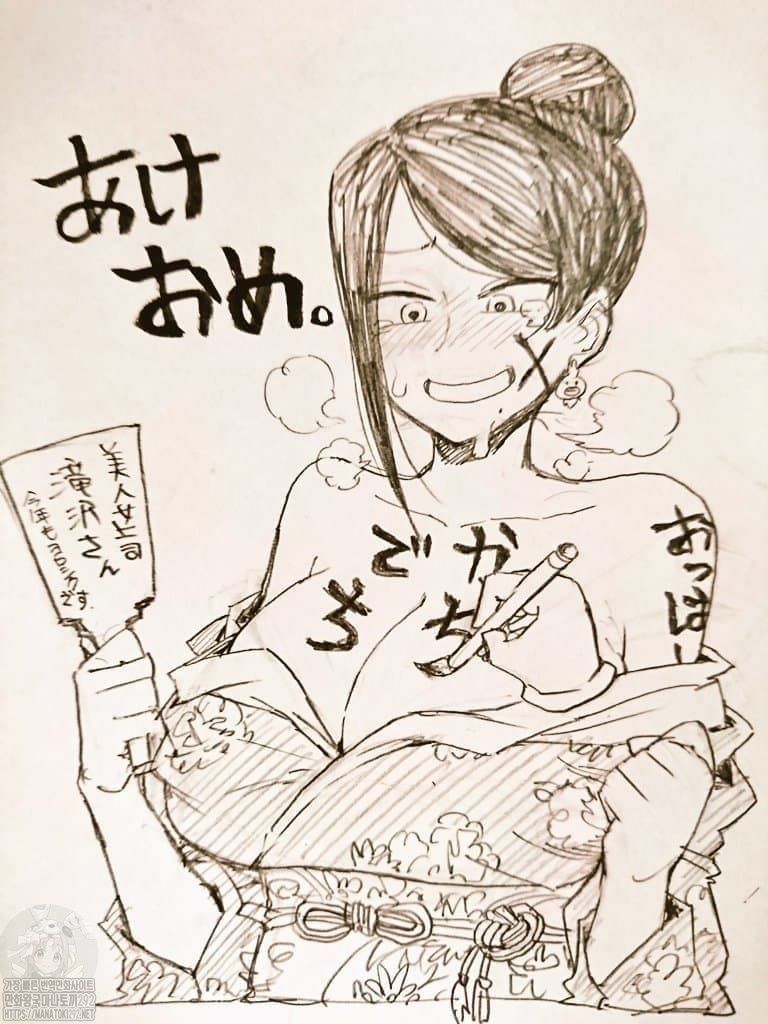 あけ
おめ。
美人女上司
滝沢さん
今年もヨロシクです。
おっぱい
でか
ち
가장 빠른 번역만화사이트
만화왕국마나토끼292
HTTPS://MANATOKI292.NET